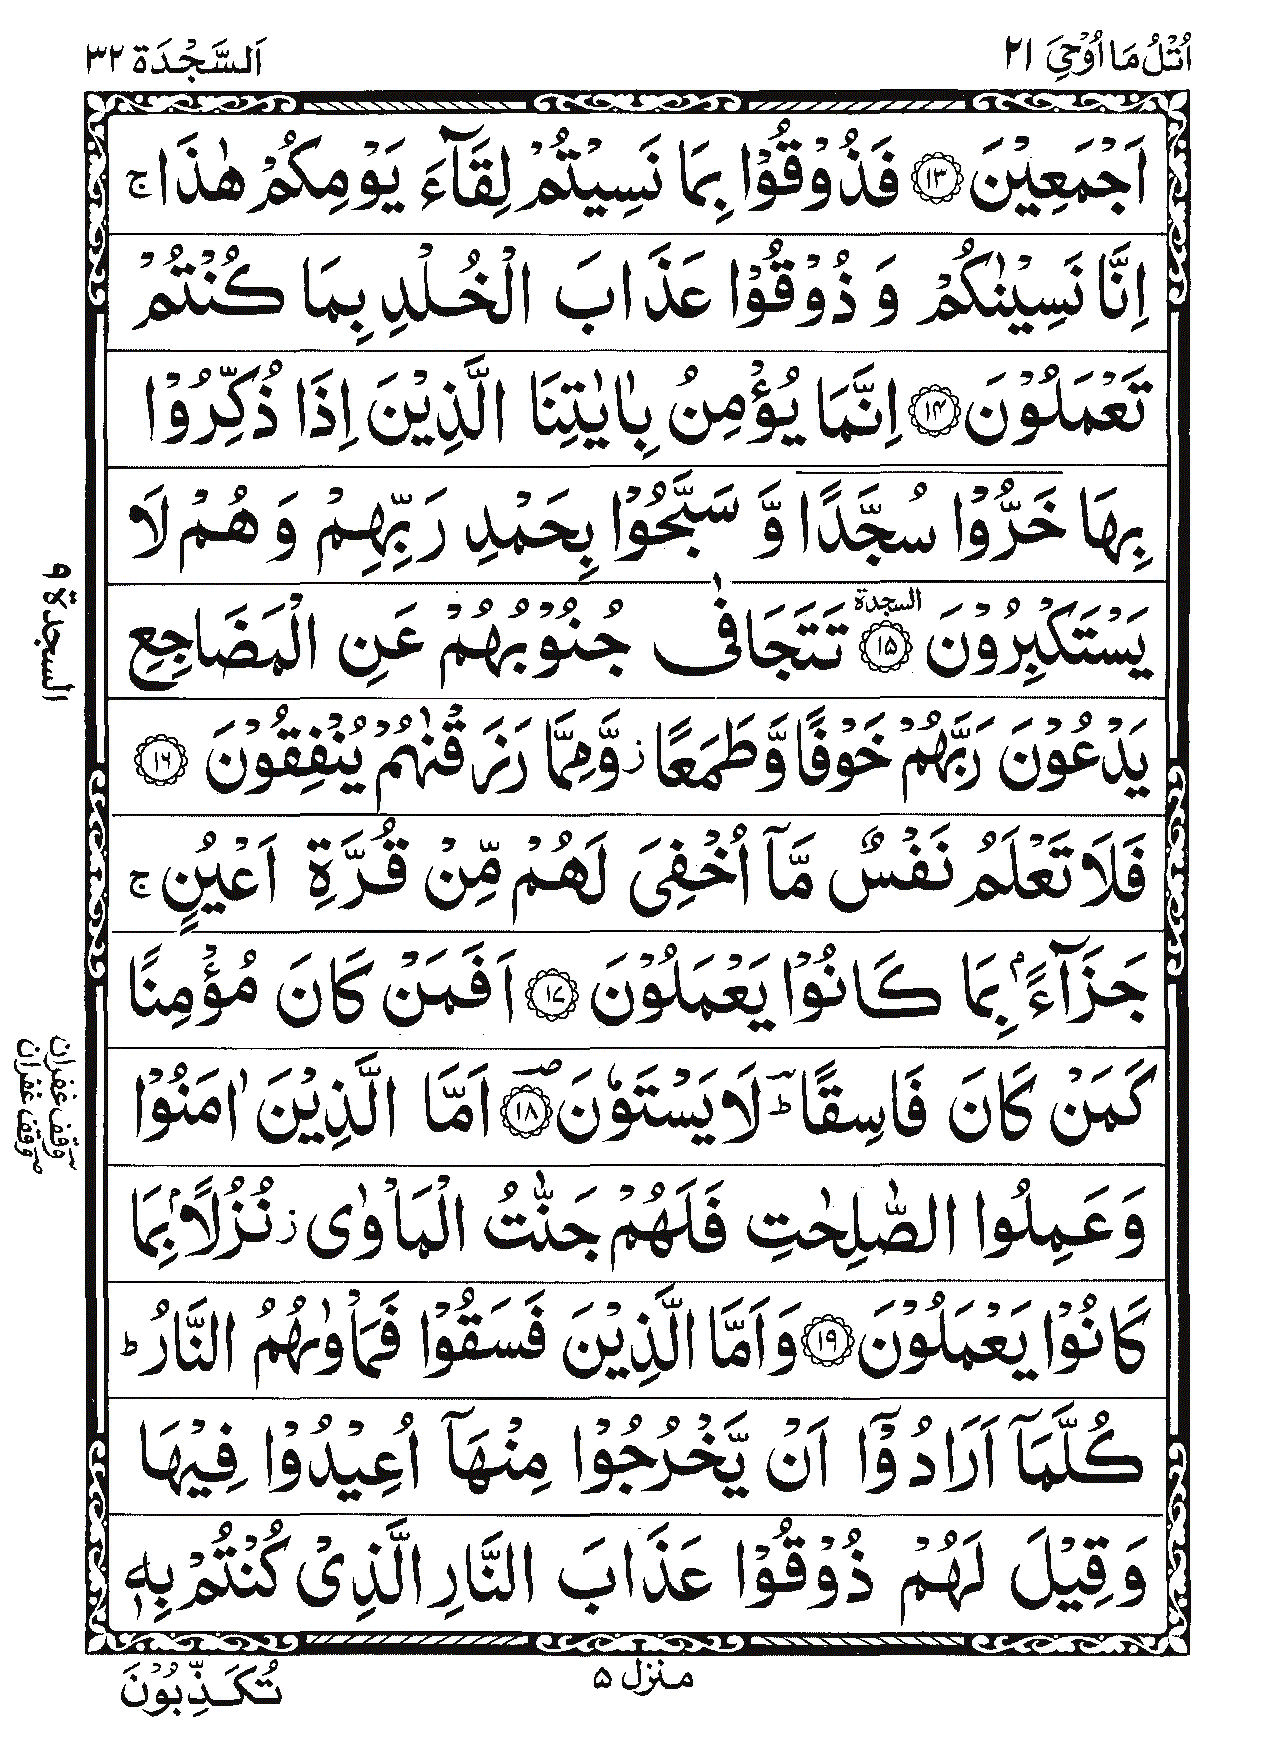 اُتْلُ مَا اُوْحِیَ ۲۱
اَلسَّجْدَة ۳۲
اَجْمَعِیْنَ ۝۱۳ فَذُوْقُوْا بِمَا نَسِیْتُمْ لِقَآءَ یَوْمِكُمْ هٰذَا ۚ
اِنَّا نَسِیْنٰكُمْ وَ ذُوْقُوْا عَذَابَ الْخُلْدِ بِمَا كُنْتُمْ
تَعْمَلُوْنَ ۝۱۴ اِنَّمَا یُؤْمِنُ بِاٰیٰتِنَا الَّذِیْنَ اِذَا ذُكِّرُوْا
بِهَا خَرُّوْا سُجَّدًا وَّ سَبَّحُوْا بِحَمْدِ رَبِّهِمْ وَ هُمْ لَا
یَسْتَكْبِرُوْنَ ۝۱۵ السجدة تَتَجَافٰی جُنُوْبُهُمْ عَنِ الْمَضَاجِعِ
السجدة ۹
یَدْعُوْنَ رَبَّهُمْ خَوْفًا وَّ طَمَعًا ز وَّ مِمَّا رَزَقْنٰهُمْ یُنْفِقُوْنَ ۝۱۶
فَلَا تَعْلَمُ نَفْسٌ مَّاۤ اُخْفِیَ لَهُمْ مِّنْ قُرَّةِ اَعْیُنٍ ۚ
جَزَآءًۢ بِمَا كَانُوْا یَعْمَلُوْنَ ۝۱۷ اَفَمَنْ كَانَ مُؤْمِنًا
كَمَنْ كَانَ فَاسِقًا ؕ لَا یَسْتَوٗنَ ۝۱۸ اَمَّا الَّذِیْنَ اٰمَنُوْا
وقف غفران
وقف غفران
وَ عَمِلُوا الصّٰلِحٰتِ فَلَهُمْ جَنّٰتُ الْمَاْوٰی ز نُزُلًۢا بِمَا
كَانُوْا یَعْمَلُوْنَ ۝۱۹ وَ اَمَّا الَّذِیْنَ فَسَقُوْا فَمَاْوٰىهُمُ النَّارُ ؕ
كُلَّمَاۤ اَرَادُوْۤا اَنْ یَّخْرُجُوْا مِنْهَاۤ اُعِیْدُوْا فِیْهَا
وَ قِیْلَ لَهُمْ ذُوْقُوْا عَذَابَ النَّارِ الَّذِیْ كُنْتُمْ بِهٖ
منزل ۵
تُكَذِّبُوْنَ